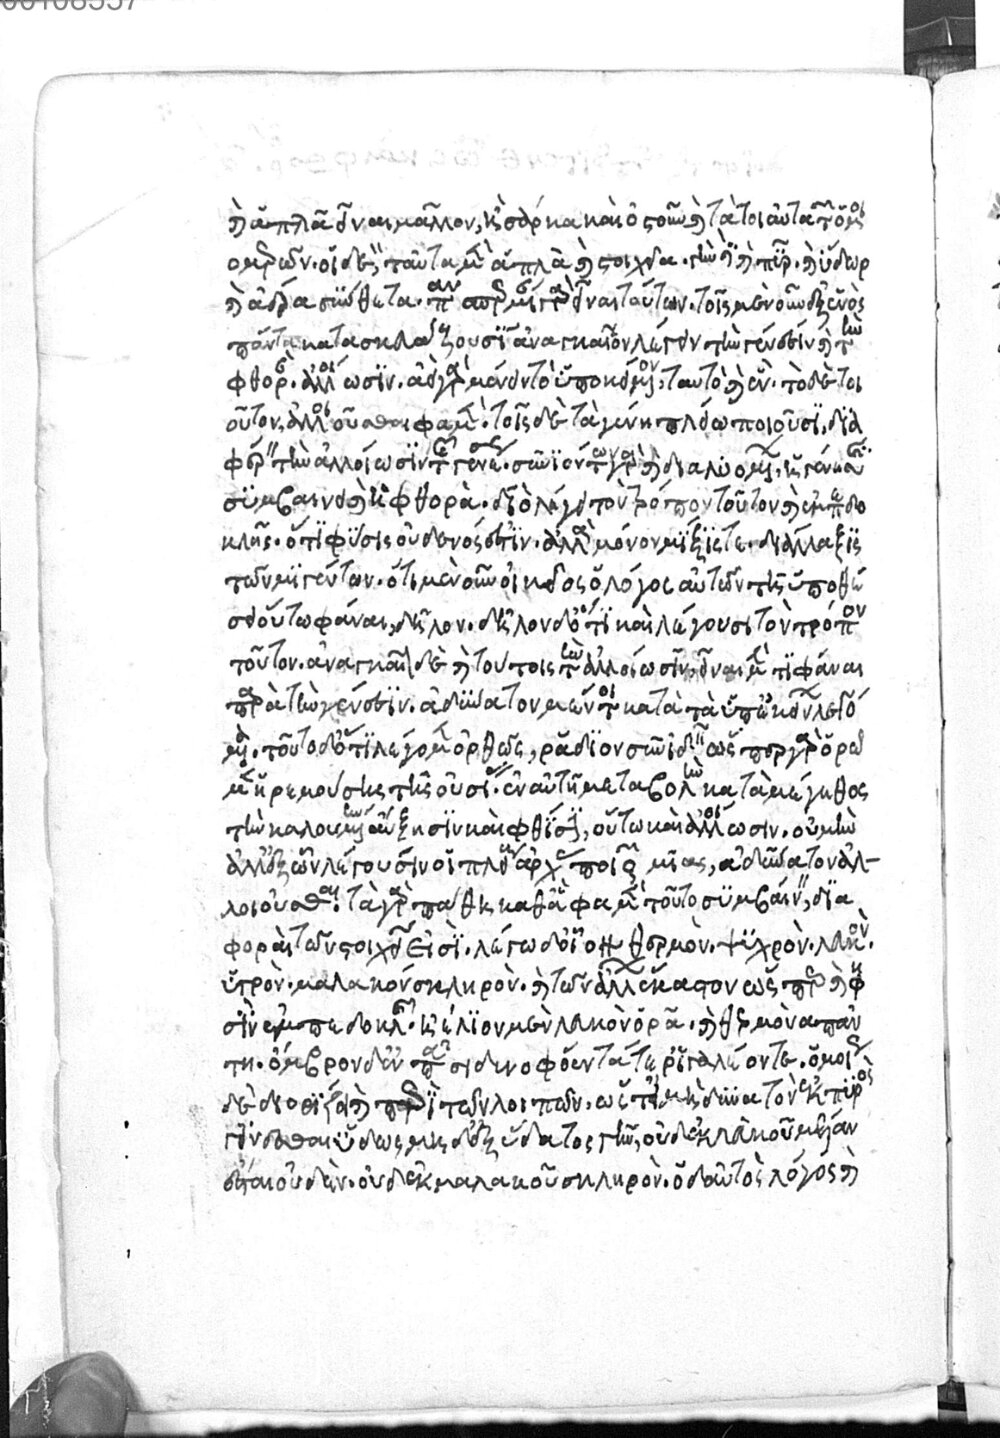 καὶ ἁπλᾶ εἶναι μᾶλλον, ἢ σάρκα καὶ ὀστοῦν καὶ τὰ τοιαῦτα τῶν ὁμοι
ομερῶν. οἱ δὲ, ταῦτα μὲν ἁπλᾶ καὶ στοιχεῖα. γῆν δὲ καὶ πῦρ. καὶ ὕδωρ
καὶ ἀέρα σύνθετα. πανσπερμίαν γὰρ εἶναι τούτων. τοῖς μὲν οὖν ἐξ ἑνὸς
πάντα κατασκευάζουσϊν ἀναγκαῖον λέγειν τὴν γένεσιν καὶ τὴν
φθορὰν. ἀλλοίωσϊν. ἀεὶ γὰρ μένειν τὸ ὑποκείμενον, ταυτὸ καὶ ἓν. τὸ δὲ τοι
οῦτον, ἀλλοιοῦσθαι φαμὲν. τοῖς δὲ τὰ γένη πλείω ποιοῦσϊ, δια
φέρειν τὴν ἀλλοίωσϊν τῆς γενέσεως. συνϊόντων γὰρ καὶ διαλυομένων, ἡ γένεσις
συμβαίνει καὶ ἡ φθορὰ. διὸ λέγει τὸν τρόπον τοῦτον καὶ ἐμπεδο
κλῆς. ὅτϊ φύσις οὐδενός ἐστϊν. ἀλλὰ μόνον μϊξίς τε. διάλλαξϊς
τε τῶν μϊγέντων. ὅτι μὲν οὖν οἰκεῖος ὁ λόγος αὐτῶν τῆ ὑποθέ
σει οὕτω φάναι, δῆλον. δῆλον δὲ ὅτϊ καὶ λέγουσι τὸν τρόπον
τοῦτον. ἀναγκαῖον δὲ καὶ τούτοις τὴν ἀλλοίωσϊν, εἶναι μὲν τϊ φάναι
παρὰ τὴν γένεσϊν. ἀδύνατον μέντοι κατὰ τὰ ὑπ' ἐκείνων λεγό
μενα. τοῦτο δ' ὅτϊ λέγομεν ὀρθῶς, ῥάδϊον συνϊδεῖν. ὥσπερ γὰρ ὁρῶ
μεν ἠρεμούσης τῆς οὐσίας. ἐν αὐτῆ μεταβολὴν κατὰ μέγεθος
τὴν καλουμένην αὔξησϊν καὶ φθίσϊν, οὕτω καὶ ἀλλοίωσιν. οὐ μὴν
ἀλλ' ἐξ ὧν λέγουσϊν οἱ πλείους ἀρχὰς ποιοῦντες μιᾶς, ἀδύνατον ἀλ-
λοιοῦσθαι. τὰ γὰρ πάθη καθ' ἃ φαμὲν τοῦτο συμβαίνειν, δϊα
φοραὶ τῶν στοιχείων εἰσὶ. λέγω δ' οἷον θερμὸν. ψϋχρὸν. λευκὸν.
ὑγρὸν. μαλακὸν σκληρὸν. καὶ τῶν ἄλλων ἕκαστον ὥσπερ καὶ φη
σϊν ἐμπεδοκλῆς. ἠέλϊον μὲν λευκὸν ὁρᾶν. καὶ θερμὸν ἀπάν
τη. ὄμβρον δ' ἐν πᾶσι δνοφόεντά τε ῥιγαλέον τε. ὁμοίως
δὲ διορίζει καὶ περὶ τῶν λοιπῶν. ὥστ' εἰ μὴ δυνατὸν ἐκ πυρὸς
γίνεσθαι ὕδωρ μηδ' ἐξ ὕδατος γῆν, οὐδ' ἐκ λευκοῦ μέλαν
ἔσται οὐδὲν. οὐδ' ἐκ μαλακοῦ σκληρὸν. ὁ δ' αὐτὸς λόγος καὶ